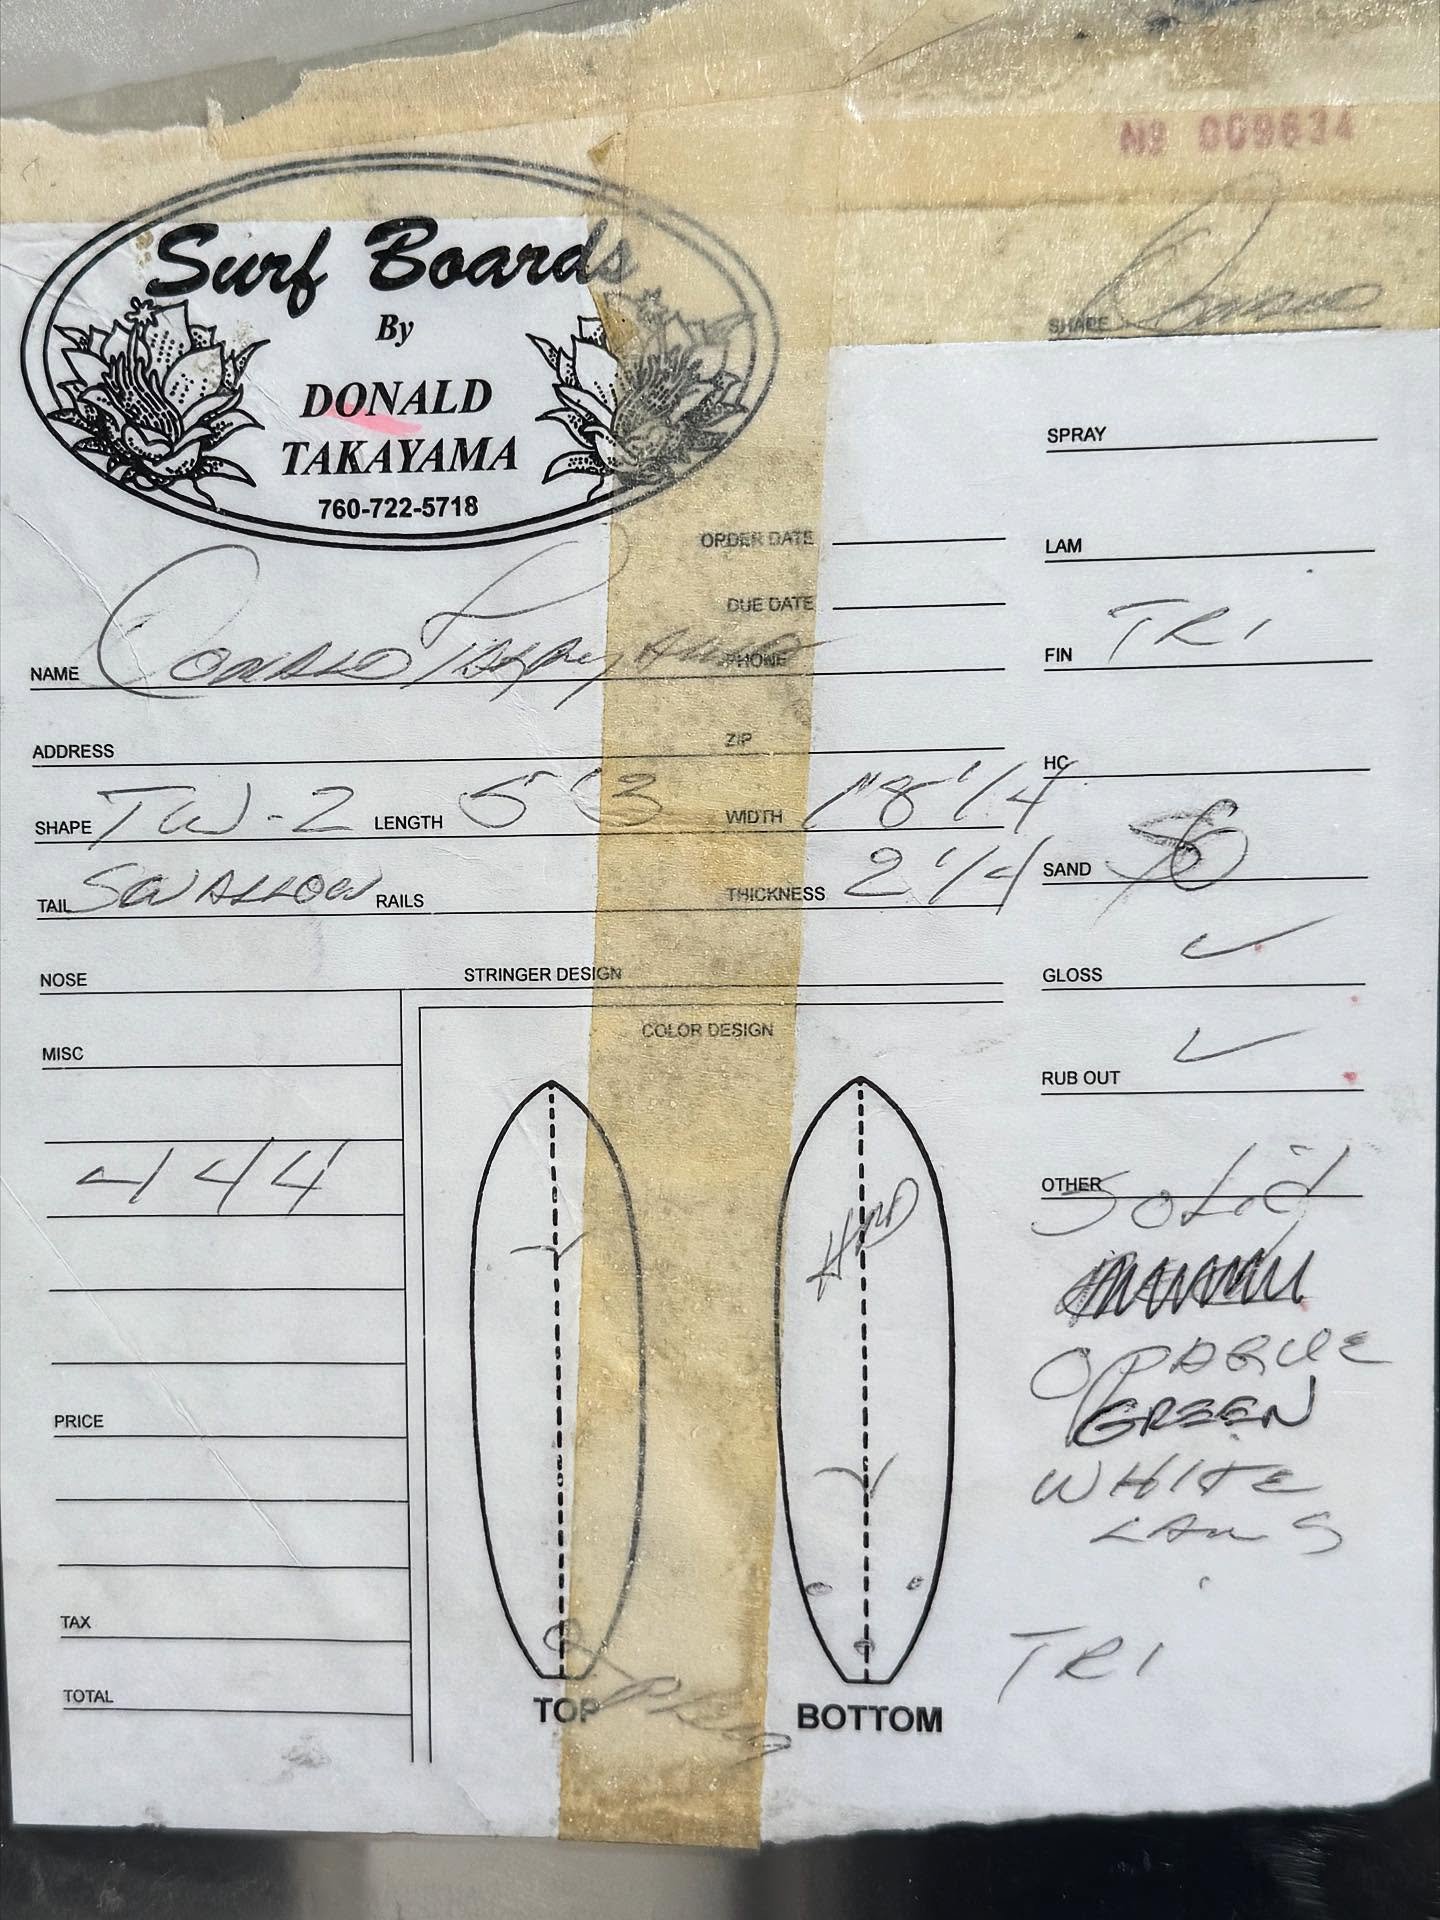 Nº 009634
Surf Boards
By
DONALD
TAKAYAMA
760-722-5718
SHAPE Donald
SPRAY
ORDER DATE
LAM
DUE DATE
FIN TRI
NAME Donald Takayama PHONE
ADDRESS ZIP
HC
SHAPE TW-2 LENGTH 5'3 WIDTH 1"8 1/4
TAIL SWALLOW RAILS THICKNESS 2 1/4
SAND
GLOSS ✓
NOSE STRINGER DESIGN
COLOR DESIGN
MISC
RUB OUT ✓
444
OTHER SOLID
HRD
OPAQUE
GREEN
PRICE
WHITE
LAMS
TRI
TAX
TOTAL
TOP
BOTTOM